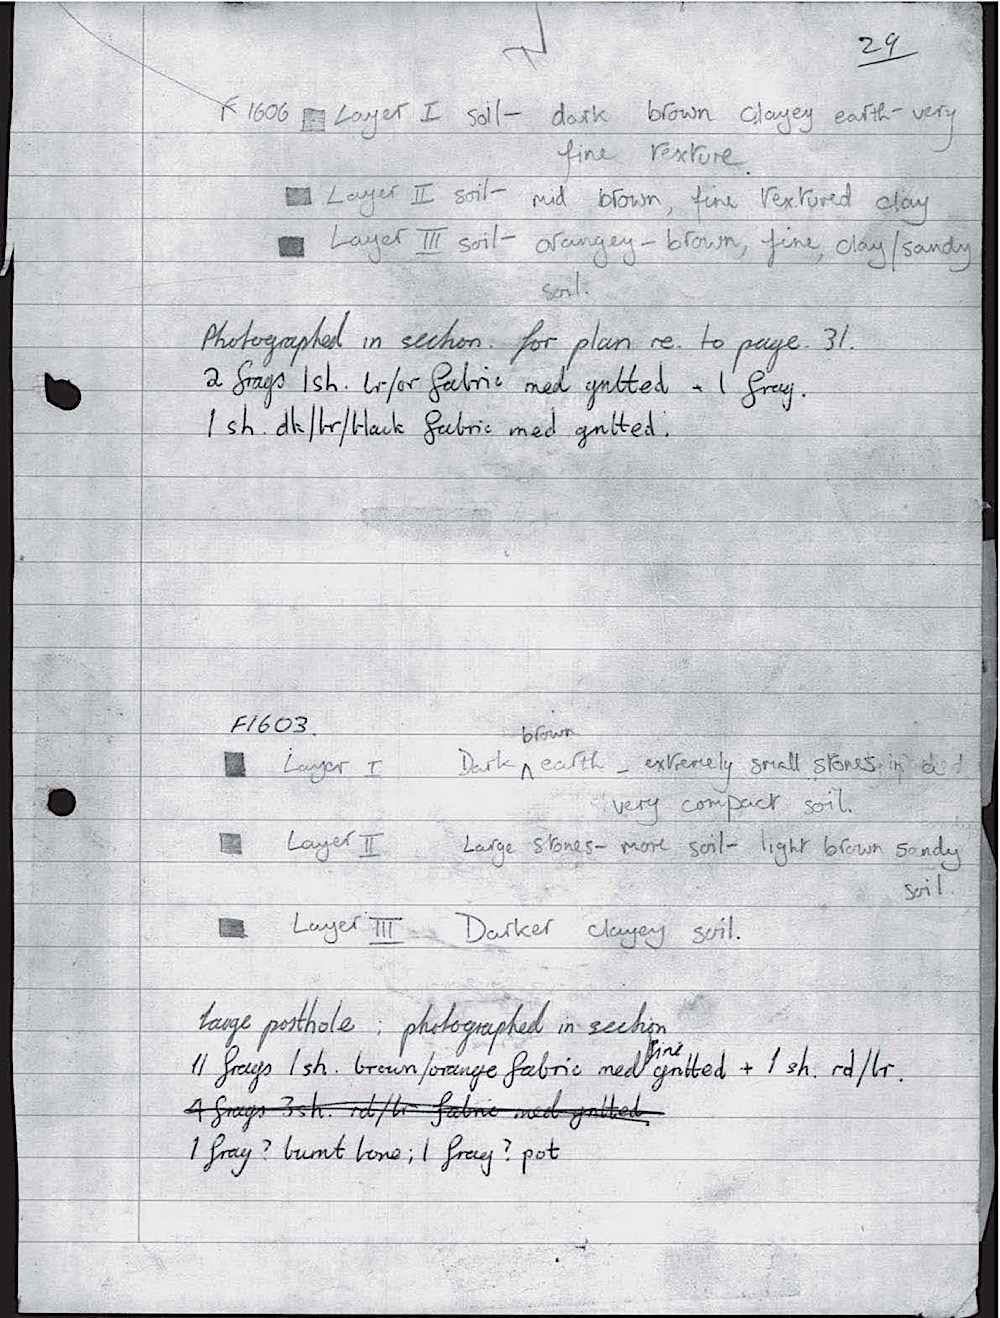 29
F1606 Layer I soil - dark brown clayey earth - very
fine texture.
Layer II soil - mid brown, fine textured clay
Layer III soil - orangey - brown, fine, clay/sandy
soil.
Photographed in section. for plan re. to page. 31.
2 frags 1sh. br/or fabric med gritted + 1 frag.
1 sh. dk/br/black fabric med gritted.
F1603.
brown
Layer I Dark ^ earth - extremely small stones in
very compact soil.
Layer II Large stones - more soil - light brown sandy
soil.
Layer III Darker clayey soil.
Large posthole ; photographed in section
fine
11 frags 1sh. brown/orange fabric med gritted + 1 sh. rd/br.
4 frags 3sh. rd/br fabric med gritted.
1 frag ? burnt bone ; 1 frag ? pot